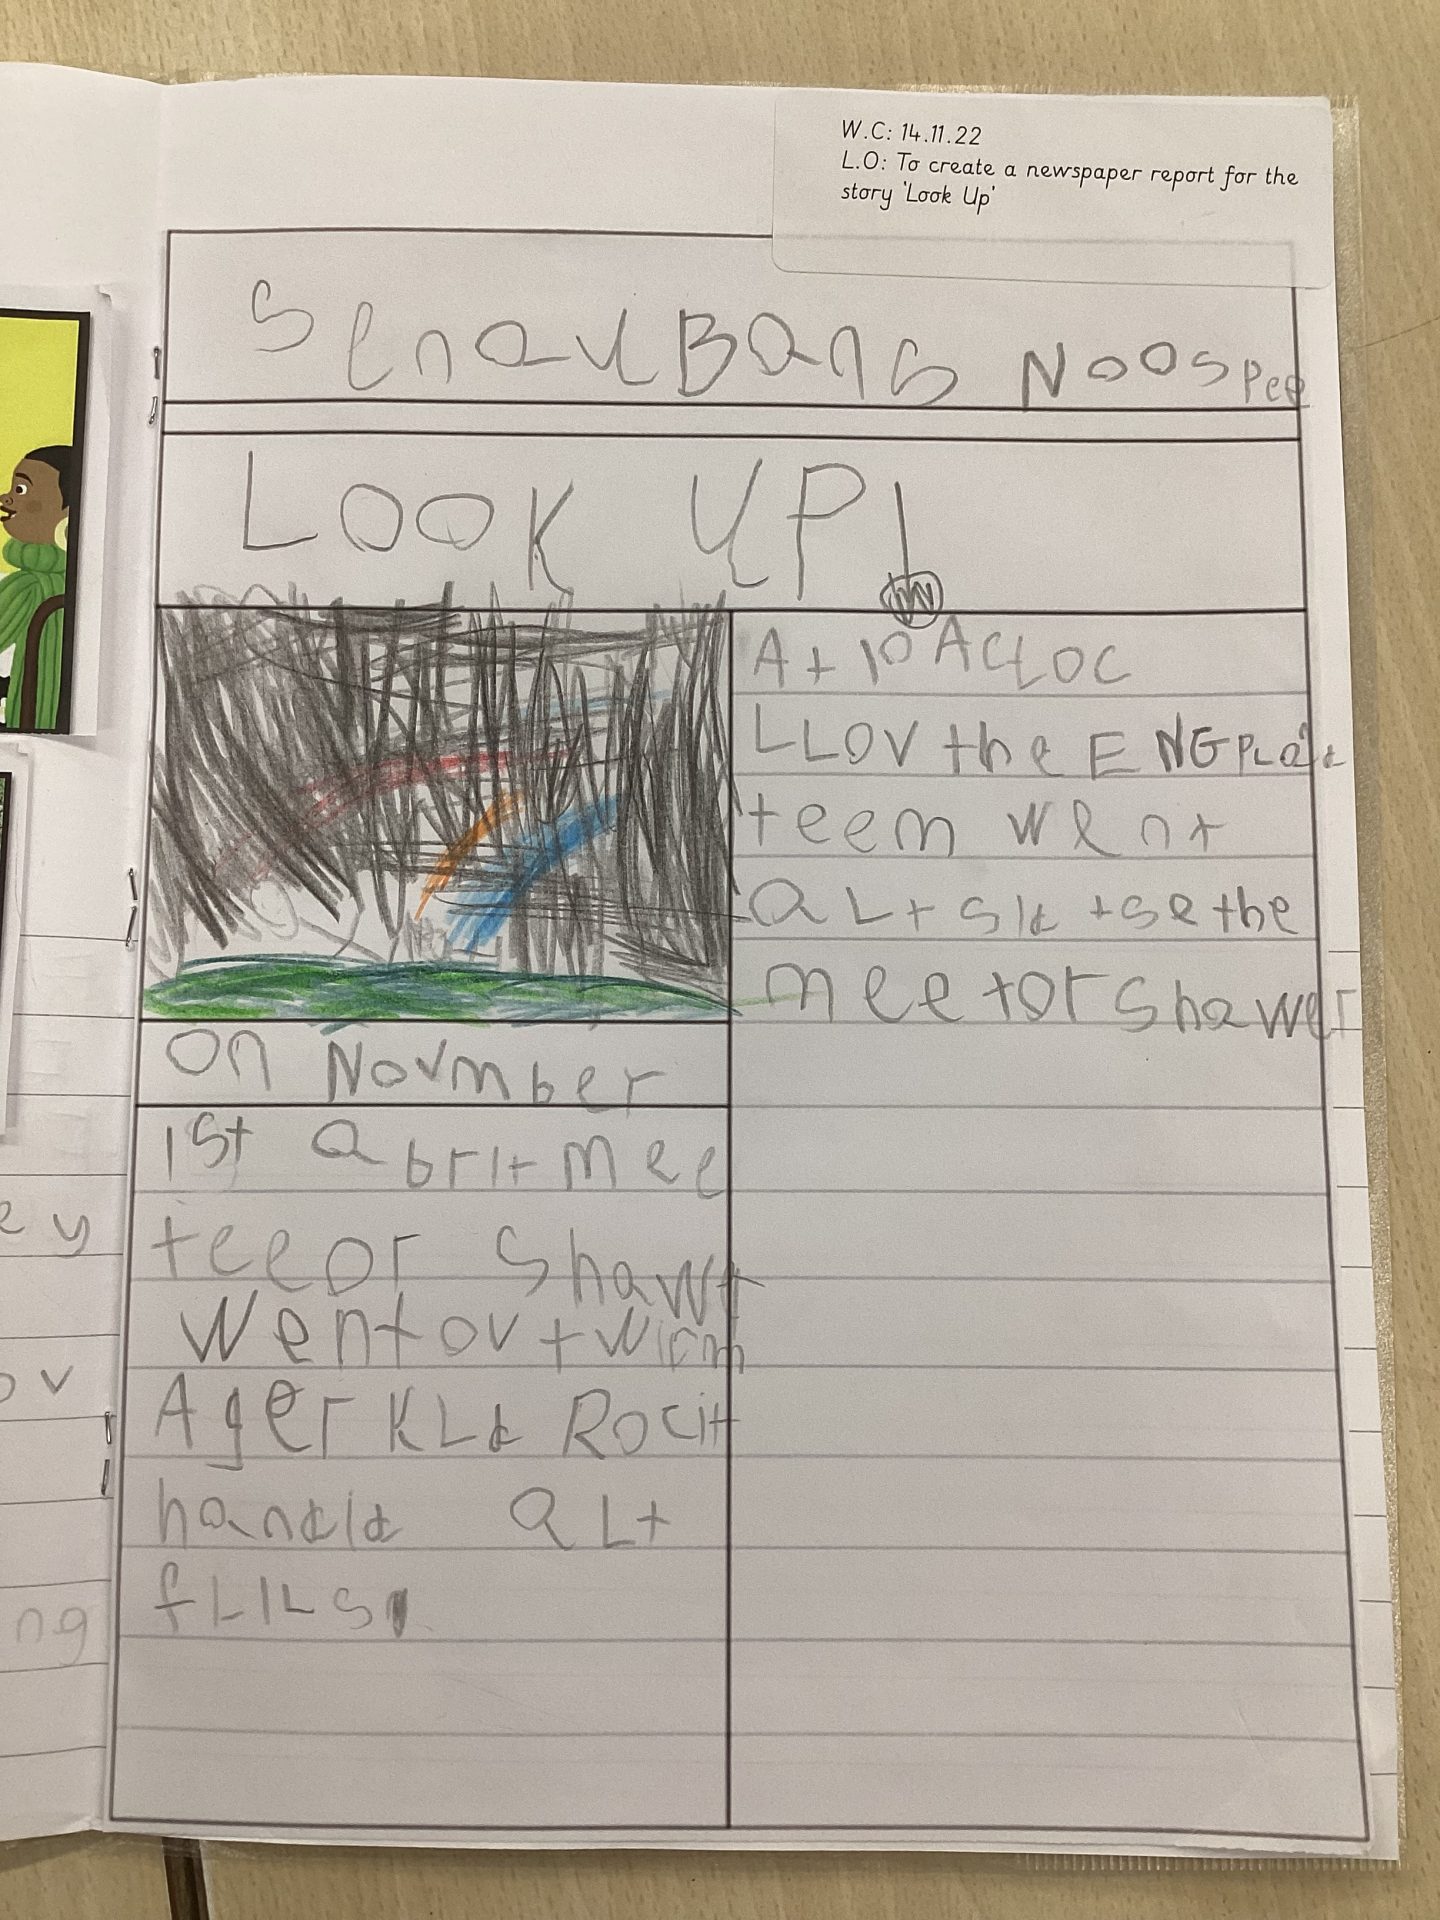 W.C: 14.11.22
L.O: To create a newspaper report for the
story 'Look Up'
SenavlBans Noospee
LOOK UP!
on Novmber
1st a brit mee
teeor Shawr
went ovt
Ager KLd Rocit
handld aLt
fLILS
At 10 ACLOC
LLOV the ENGPLaid
teem went
aLt sid tse the
meetor Shawer
ey
ov
ng